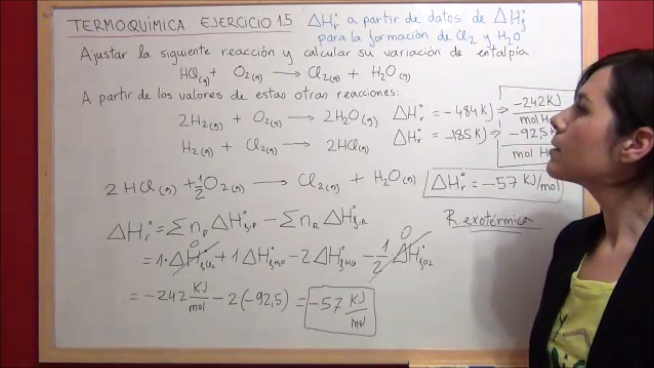 TERMOQUÍMICA EJERCICIO 15 ΔHr° a partir de datos de ΔHf°
para la formación de Cl2 y H2O
Ajustar la siguiente reacción y calcular su variación de entalpía
HCl(g) + O2(g) → Cl2(g) + H2O(g)
A partir de los valores de estas otras reacciones:
2H2(g) + O2(g) → 2H2O(g) ΔHr° = -484KJ ⇒ -242KJ
H2(g) + Cl2(g) → 2HCl(g) ΔHr° = -185KJ ⇒ -92,5KJ
2HCl(g) + 1/2 O2(g) → Cl2(g) + H2O(g) ΔHr° = -57 KJ/mol
ΔHr° = Σnp ΔHf,P° - Σnr ΔHf,R° R. exotérmica
= 1·ΔHf,Cl2° 0 + 1ΔHf,H2O° - 2ΔHf,HCl° - 1/2 ΔHf,O2° 0
= -242 KJ/mol - 2(-92,5) = -57 KJ/mol